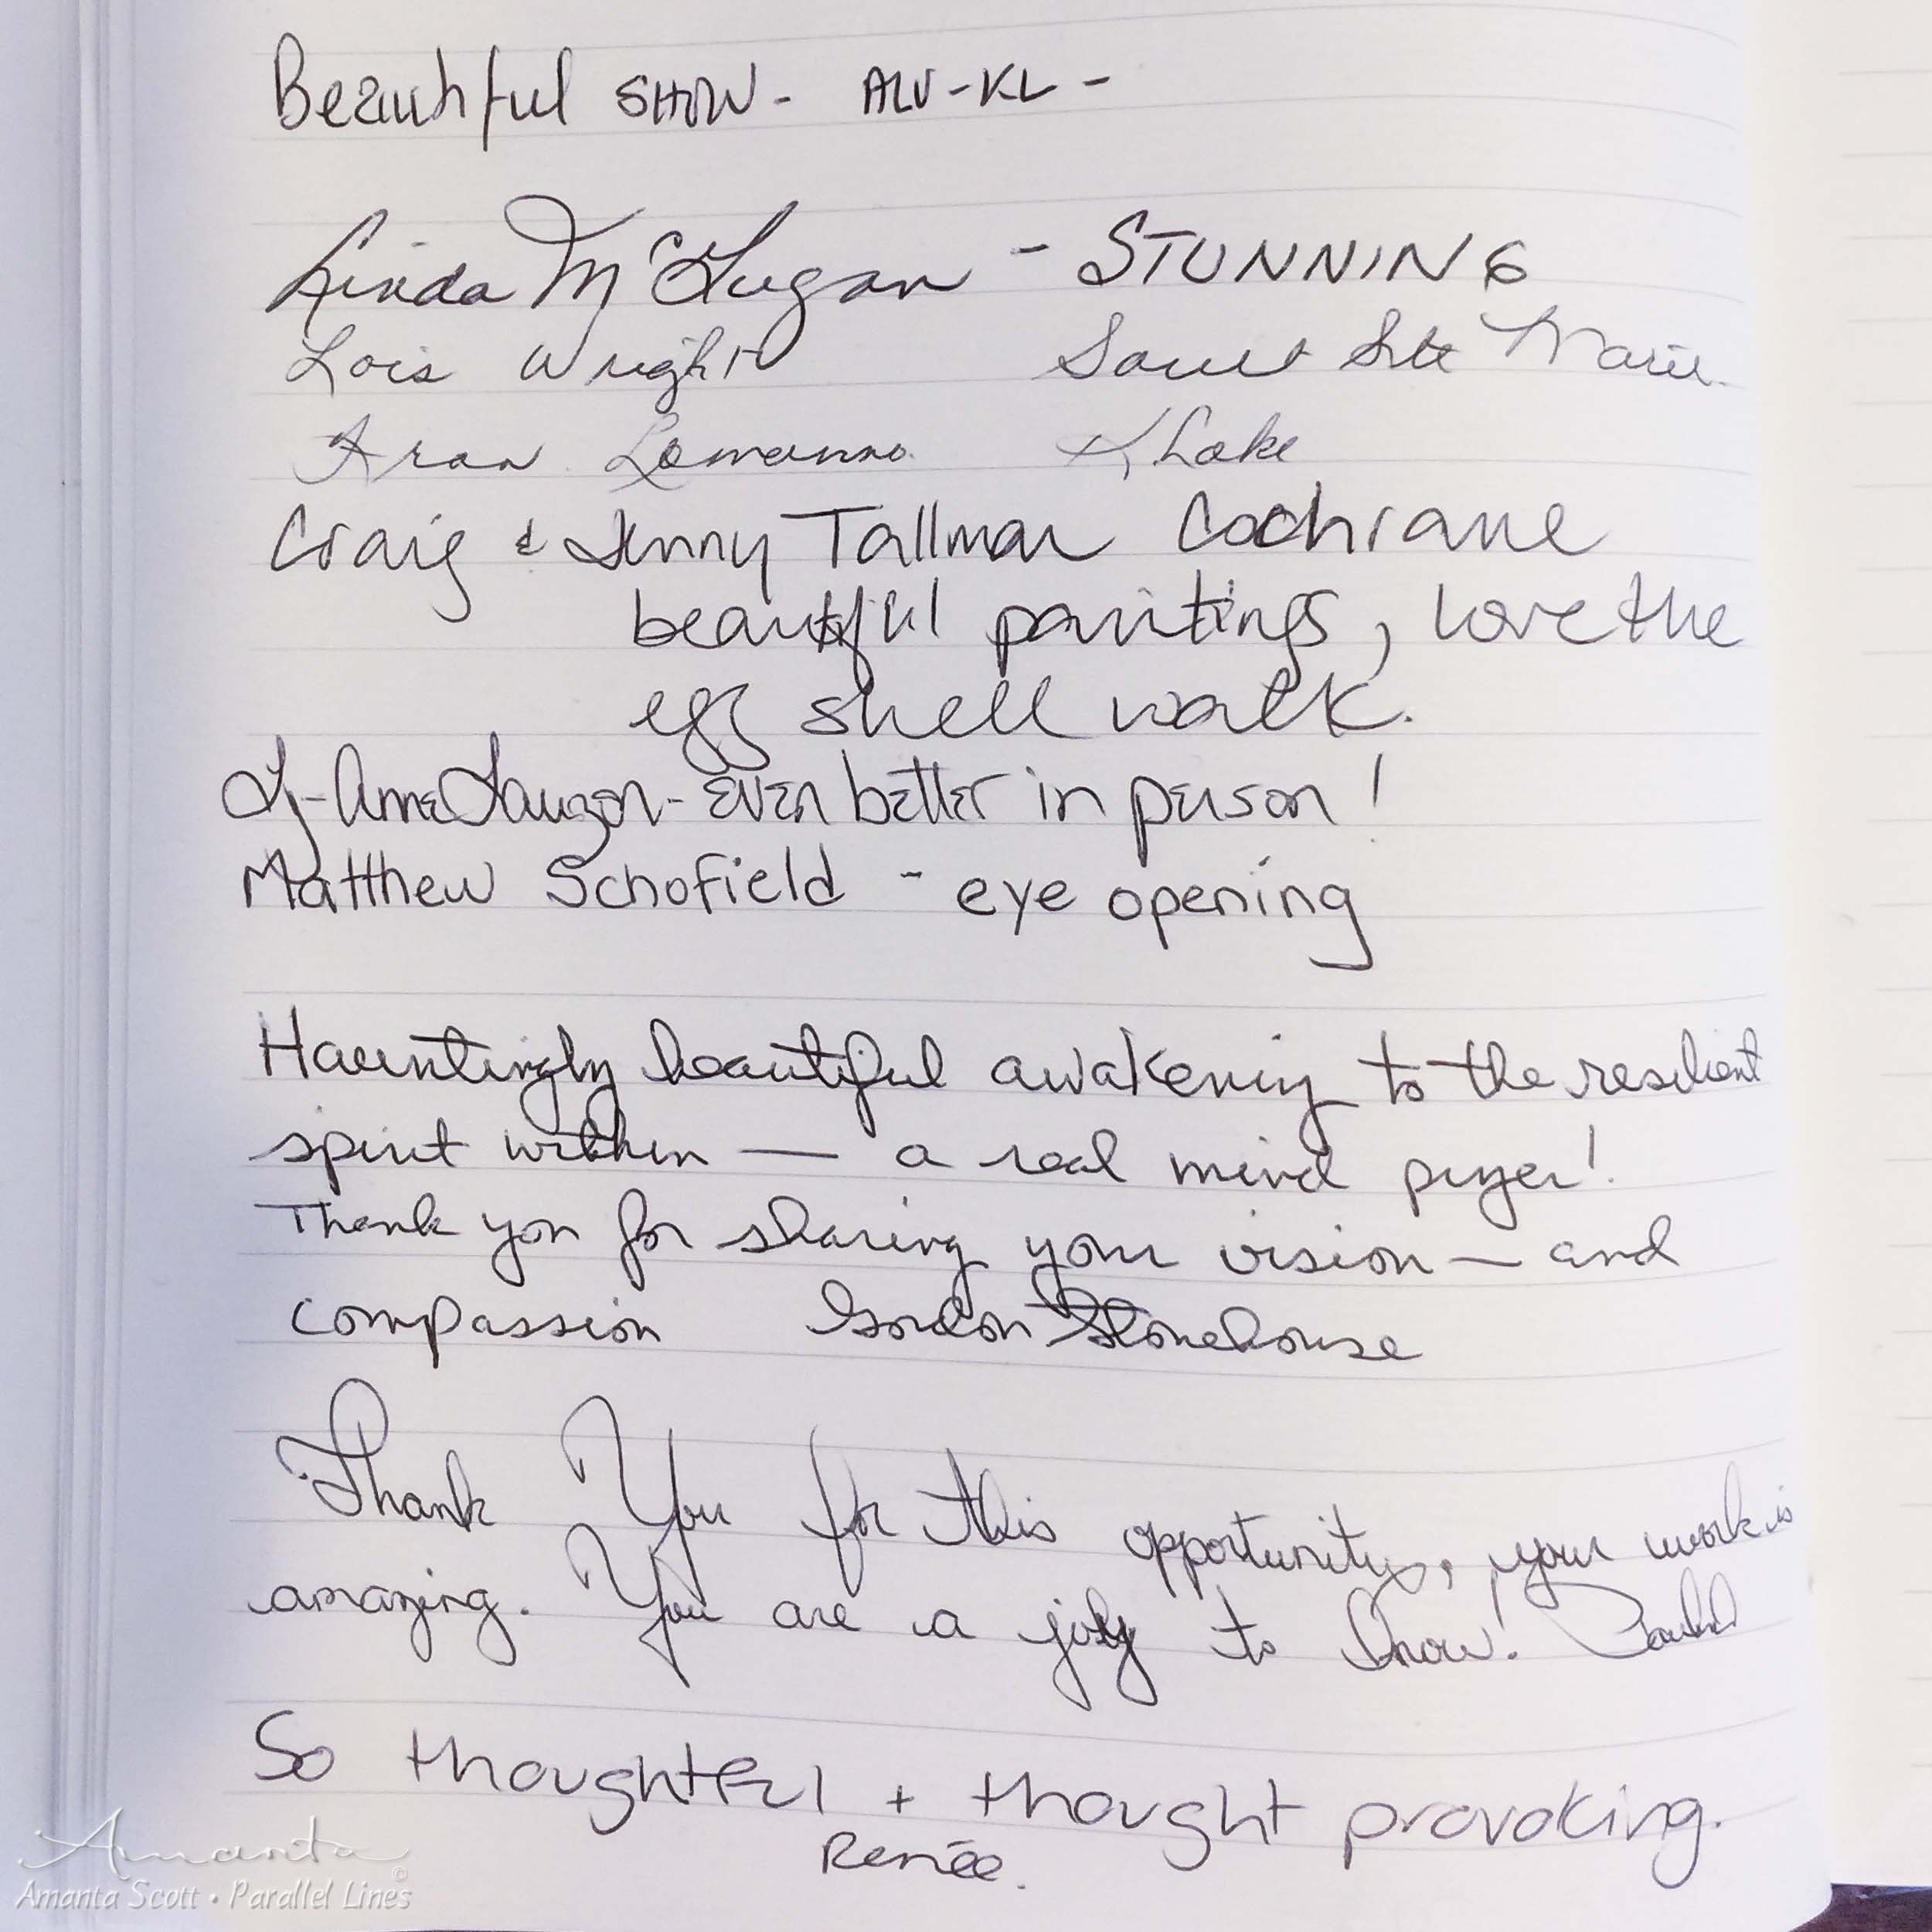 Beautiful SHOW - ALV-KL -
Linda McGugan - STUNNING
Lois Wright Sault Ste Marie.
Fran Lomanno. K Lake
Craig & Jenny Tallman Cochrane
beautiful paintings, love the
egg shell walk.
Ly-Anne Lauzon - Even better in person!
Matthew Schofield - eye opening
Hauntingly beautiful awakening to the resilient
spirit within — a real mind
Thank you for sharing your vision — and
compassion Gordon Stonehouse
Thank You for this opportunity, your work is
amazing. You are a joy to know!
So thoughtful + thought provoking.
Renée.
Amanta ©
Amanta Scott • Parallel Lines